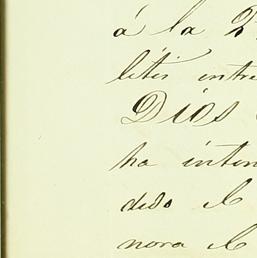 á la
litis entre
Dios
ha inten
dido el
nora el